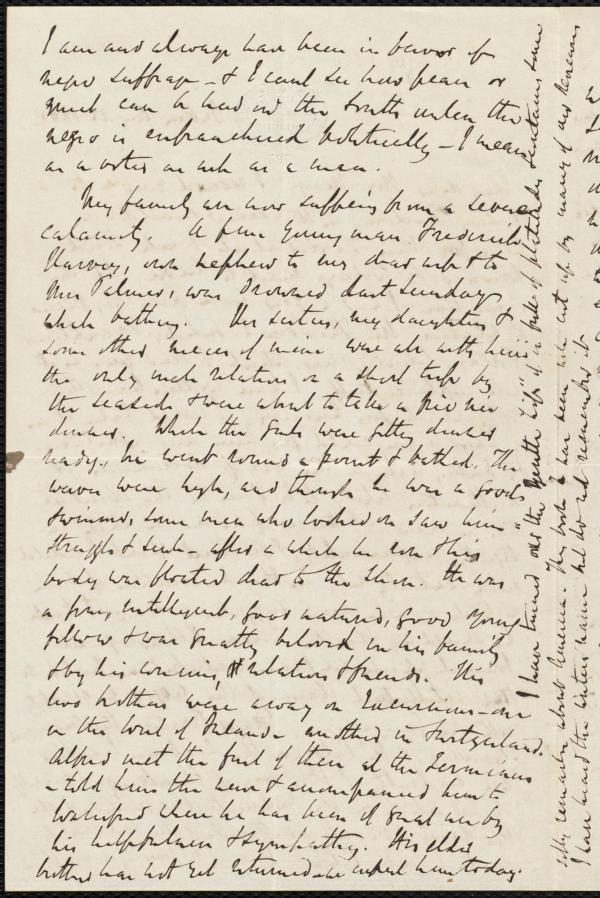 I am and always have been in favor of
negro suffrage - & I cant see how peace or
quiet can be had in the South unless the
negro is enfranchised politically - I mean
as a voter as well as a man.
My family are now suffering from a severe
calamity. A fine young man Frederick
Harvey, own nephew to my dear wife & to
Mrs Palmer, was drowned last Sunday
while bathing. His sisters, my daughters &
some other nieces of mine were all with him
the only male relation on a short trip by
the seaside & were about to take a pic nic
dinner. While the girls were getting dinner
ready, he went round a point & bathed. The
waves were high, and though he was a good
swimmer, some men who looked on saw him
struggle & sink - after a while he rose & his
body was floated dead to the shore. He was
a fine, intelligent, good natured, good young
fellow & was greatly beloved in his family
& by his cousins, relations & friends. His
two brothers were away on Excursions - one
in the West of Ireland - another in Switzerland.
Alfred met the first of them at the Terminus
- told him the news & accompanied him to
Waterford where he has been of great use by
his helpfulness & sympathy. His elder
brother has not yet returned - we expect him today.
I have turned over the "Gentle Life" it is full of platitudes & contains some
silly remarks about America. This book I have seen well cut up by many of our Reviewers
I have heard the writers name but do not remember it